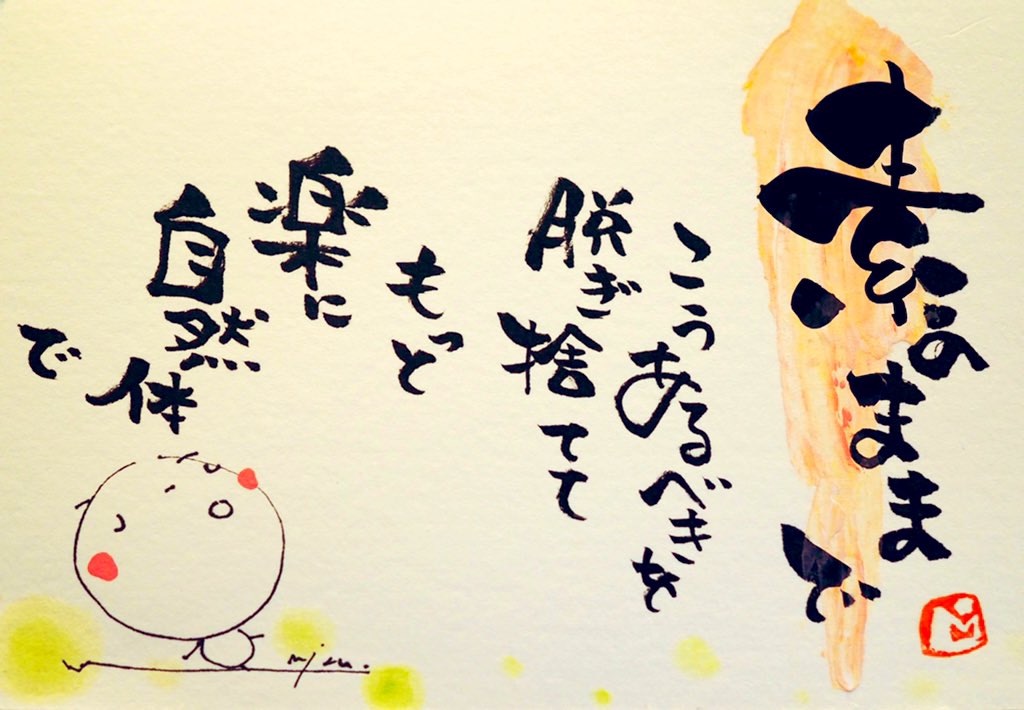 素のままで
こうあるべきを
脱ぎ捨てて
もっと
楽に
自然体
で